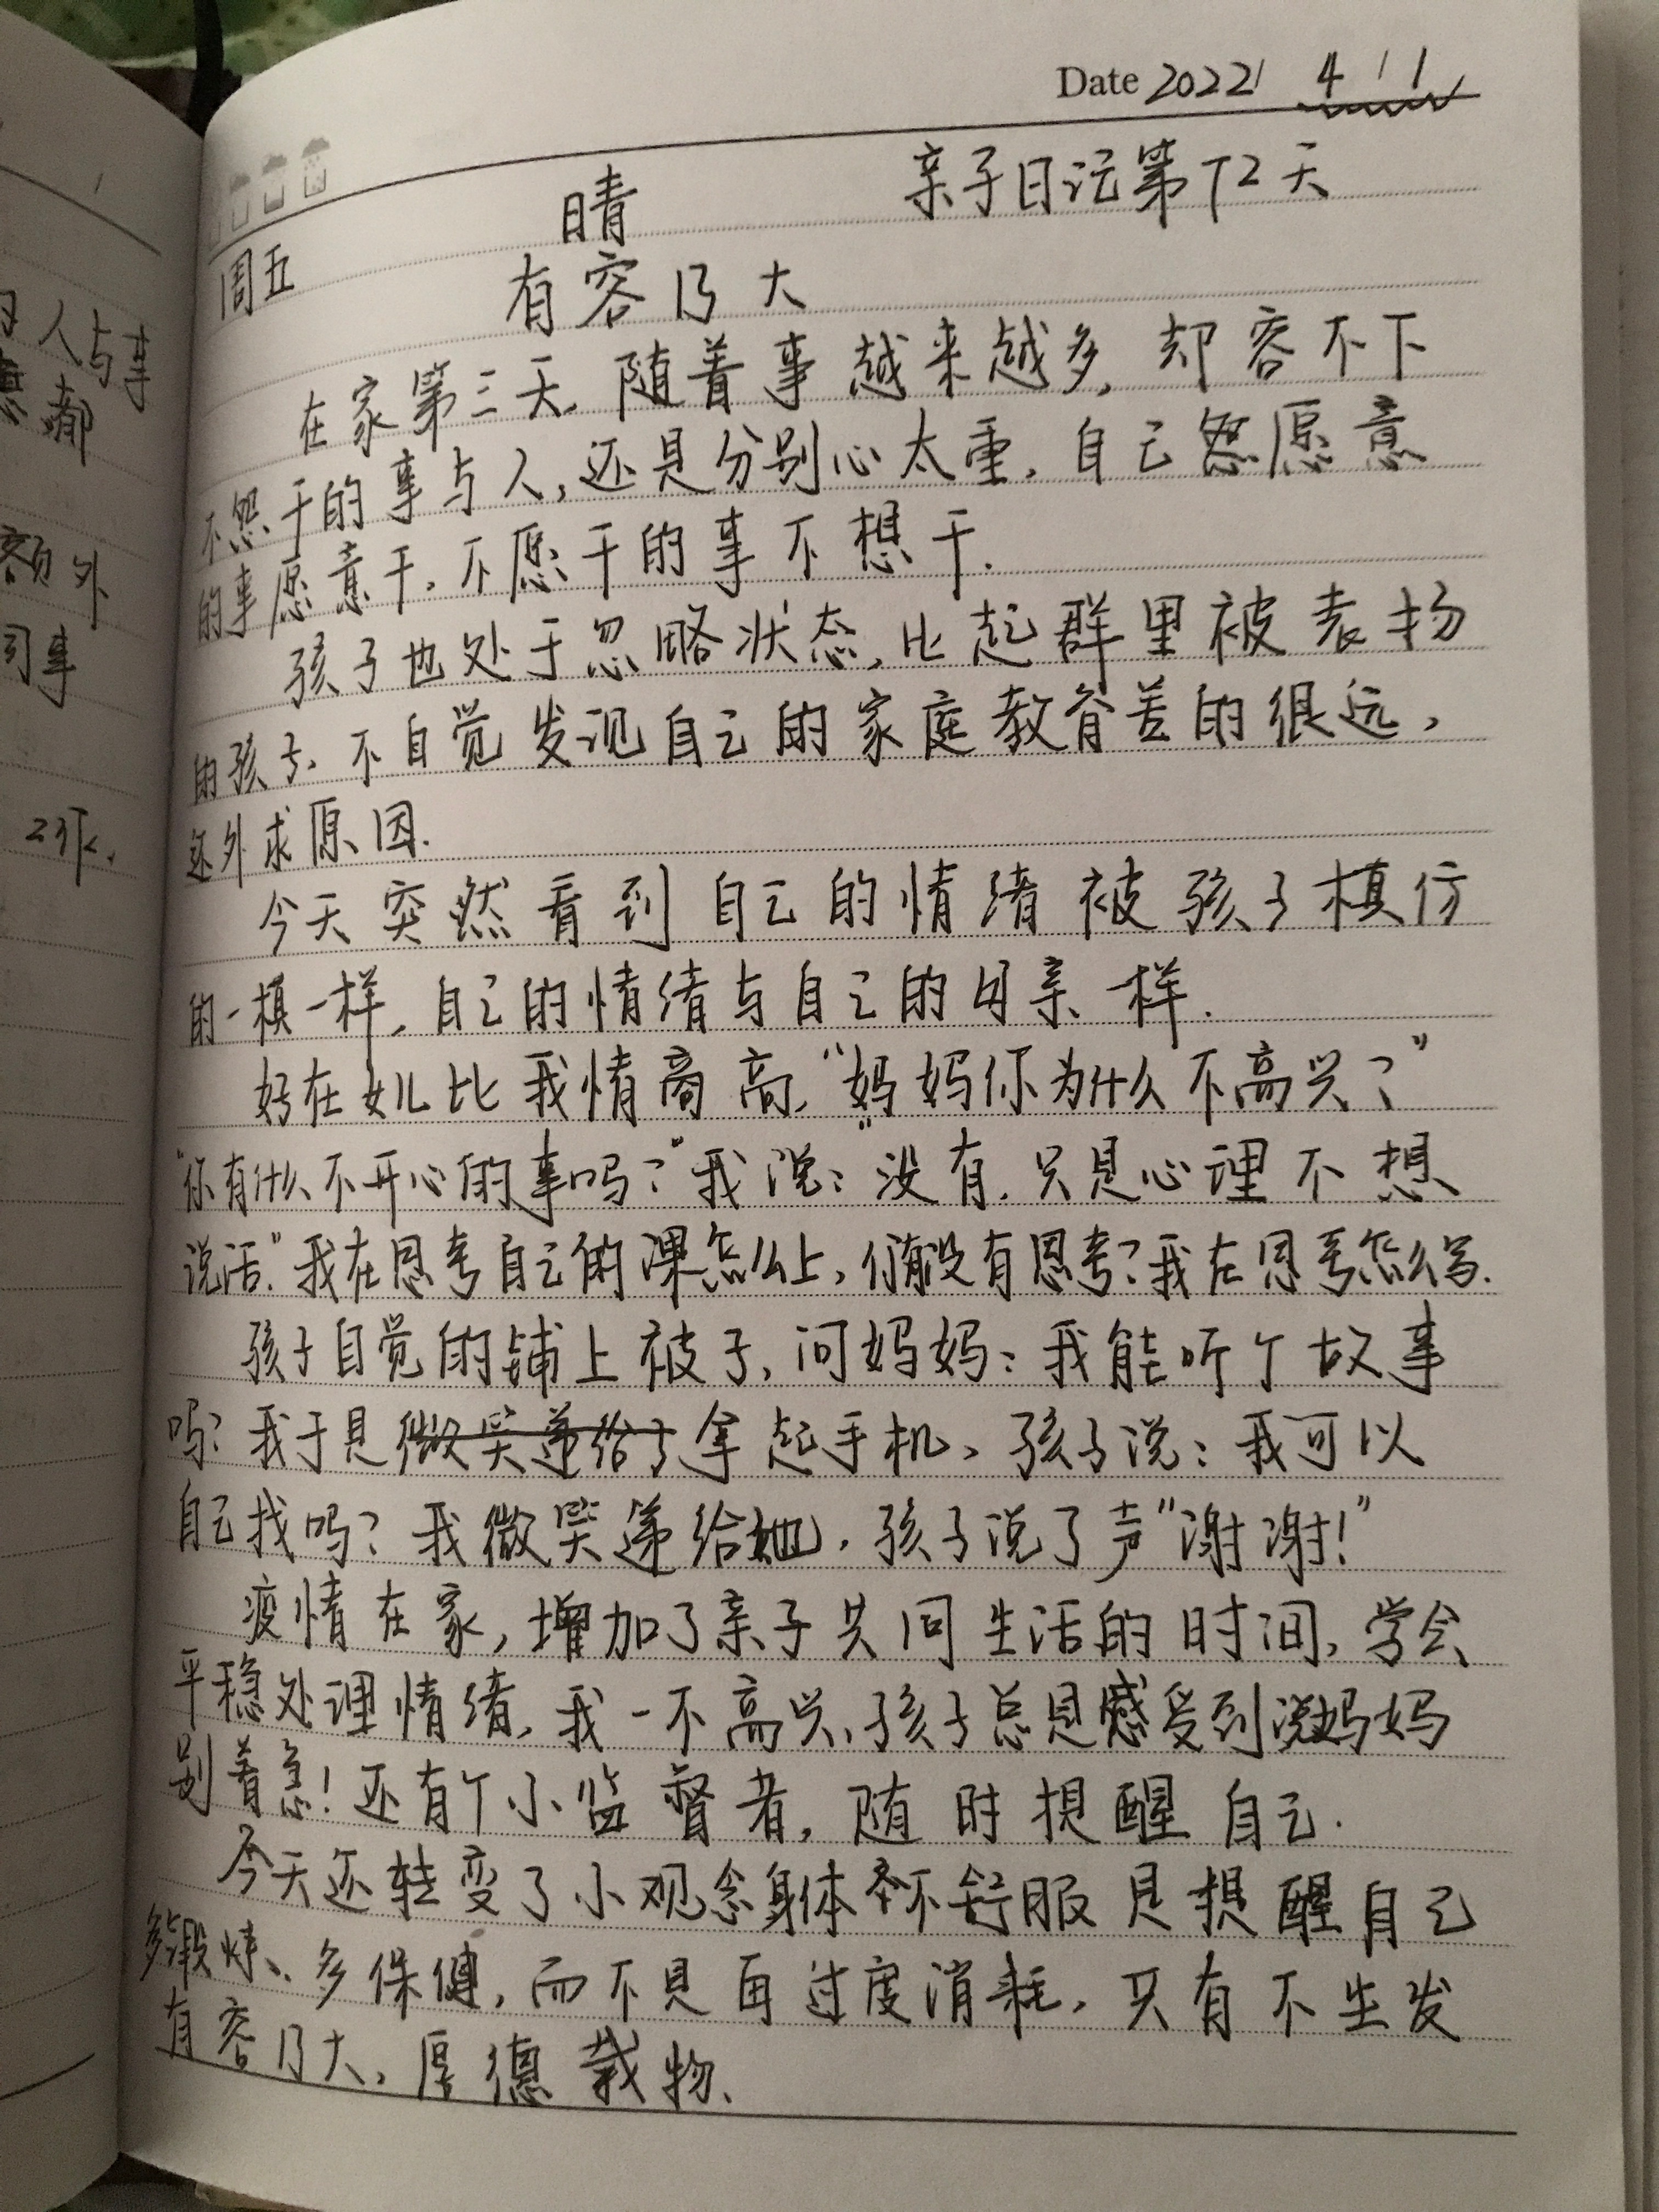 Date 2022 / 4 / 1
晴 亲子日记第72天
周五
有容乃大
在家第三天,随着事越来越多,却容不下
不愿干的事与人,还是分别心太重.自己愿意
的事愿意干.不愿干的事不想干.
孩子也处于忽略状态,比起群里被表扬
的孩子.不自觉发现自己的家庭教育差的很远,
还外求原因.
今天突然看到自己的情绪被孩子模仿
的一模一样,自己的情绪与自己的母亲一样.
好在女儿比我情商高,"妈妈你为什么不高兴?"
"你有什么不开心的事吗?"我说:"没有.只是心理不想
说话."我在思考自己的课怎么上,你有没有思考?我在思考怎么写.
孩子自觉的铺上被子,问妈妈:我能听个故事
吗?我于是微笑递给了拿起手机、孩子说:我可以
自己找吗?我微笑递给她.孩子说了声"谢谢!"
疫情在家,增加了亲子共同生活的时间,学会
平稳处理情绪,我一不高兴,孩子总是感受到说妈妈
别着急!还有个小监督者,随时提醒自己.
今天还转变了小观念身体不舒服是提醒自己
多锻炼、多保健,而不是再过度消耗,只有不生发
有容乃大,厚德载物、
人与事
都
额外
同事